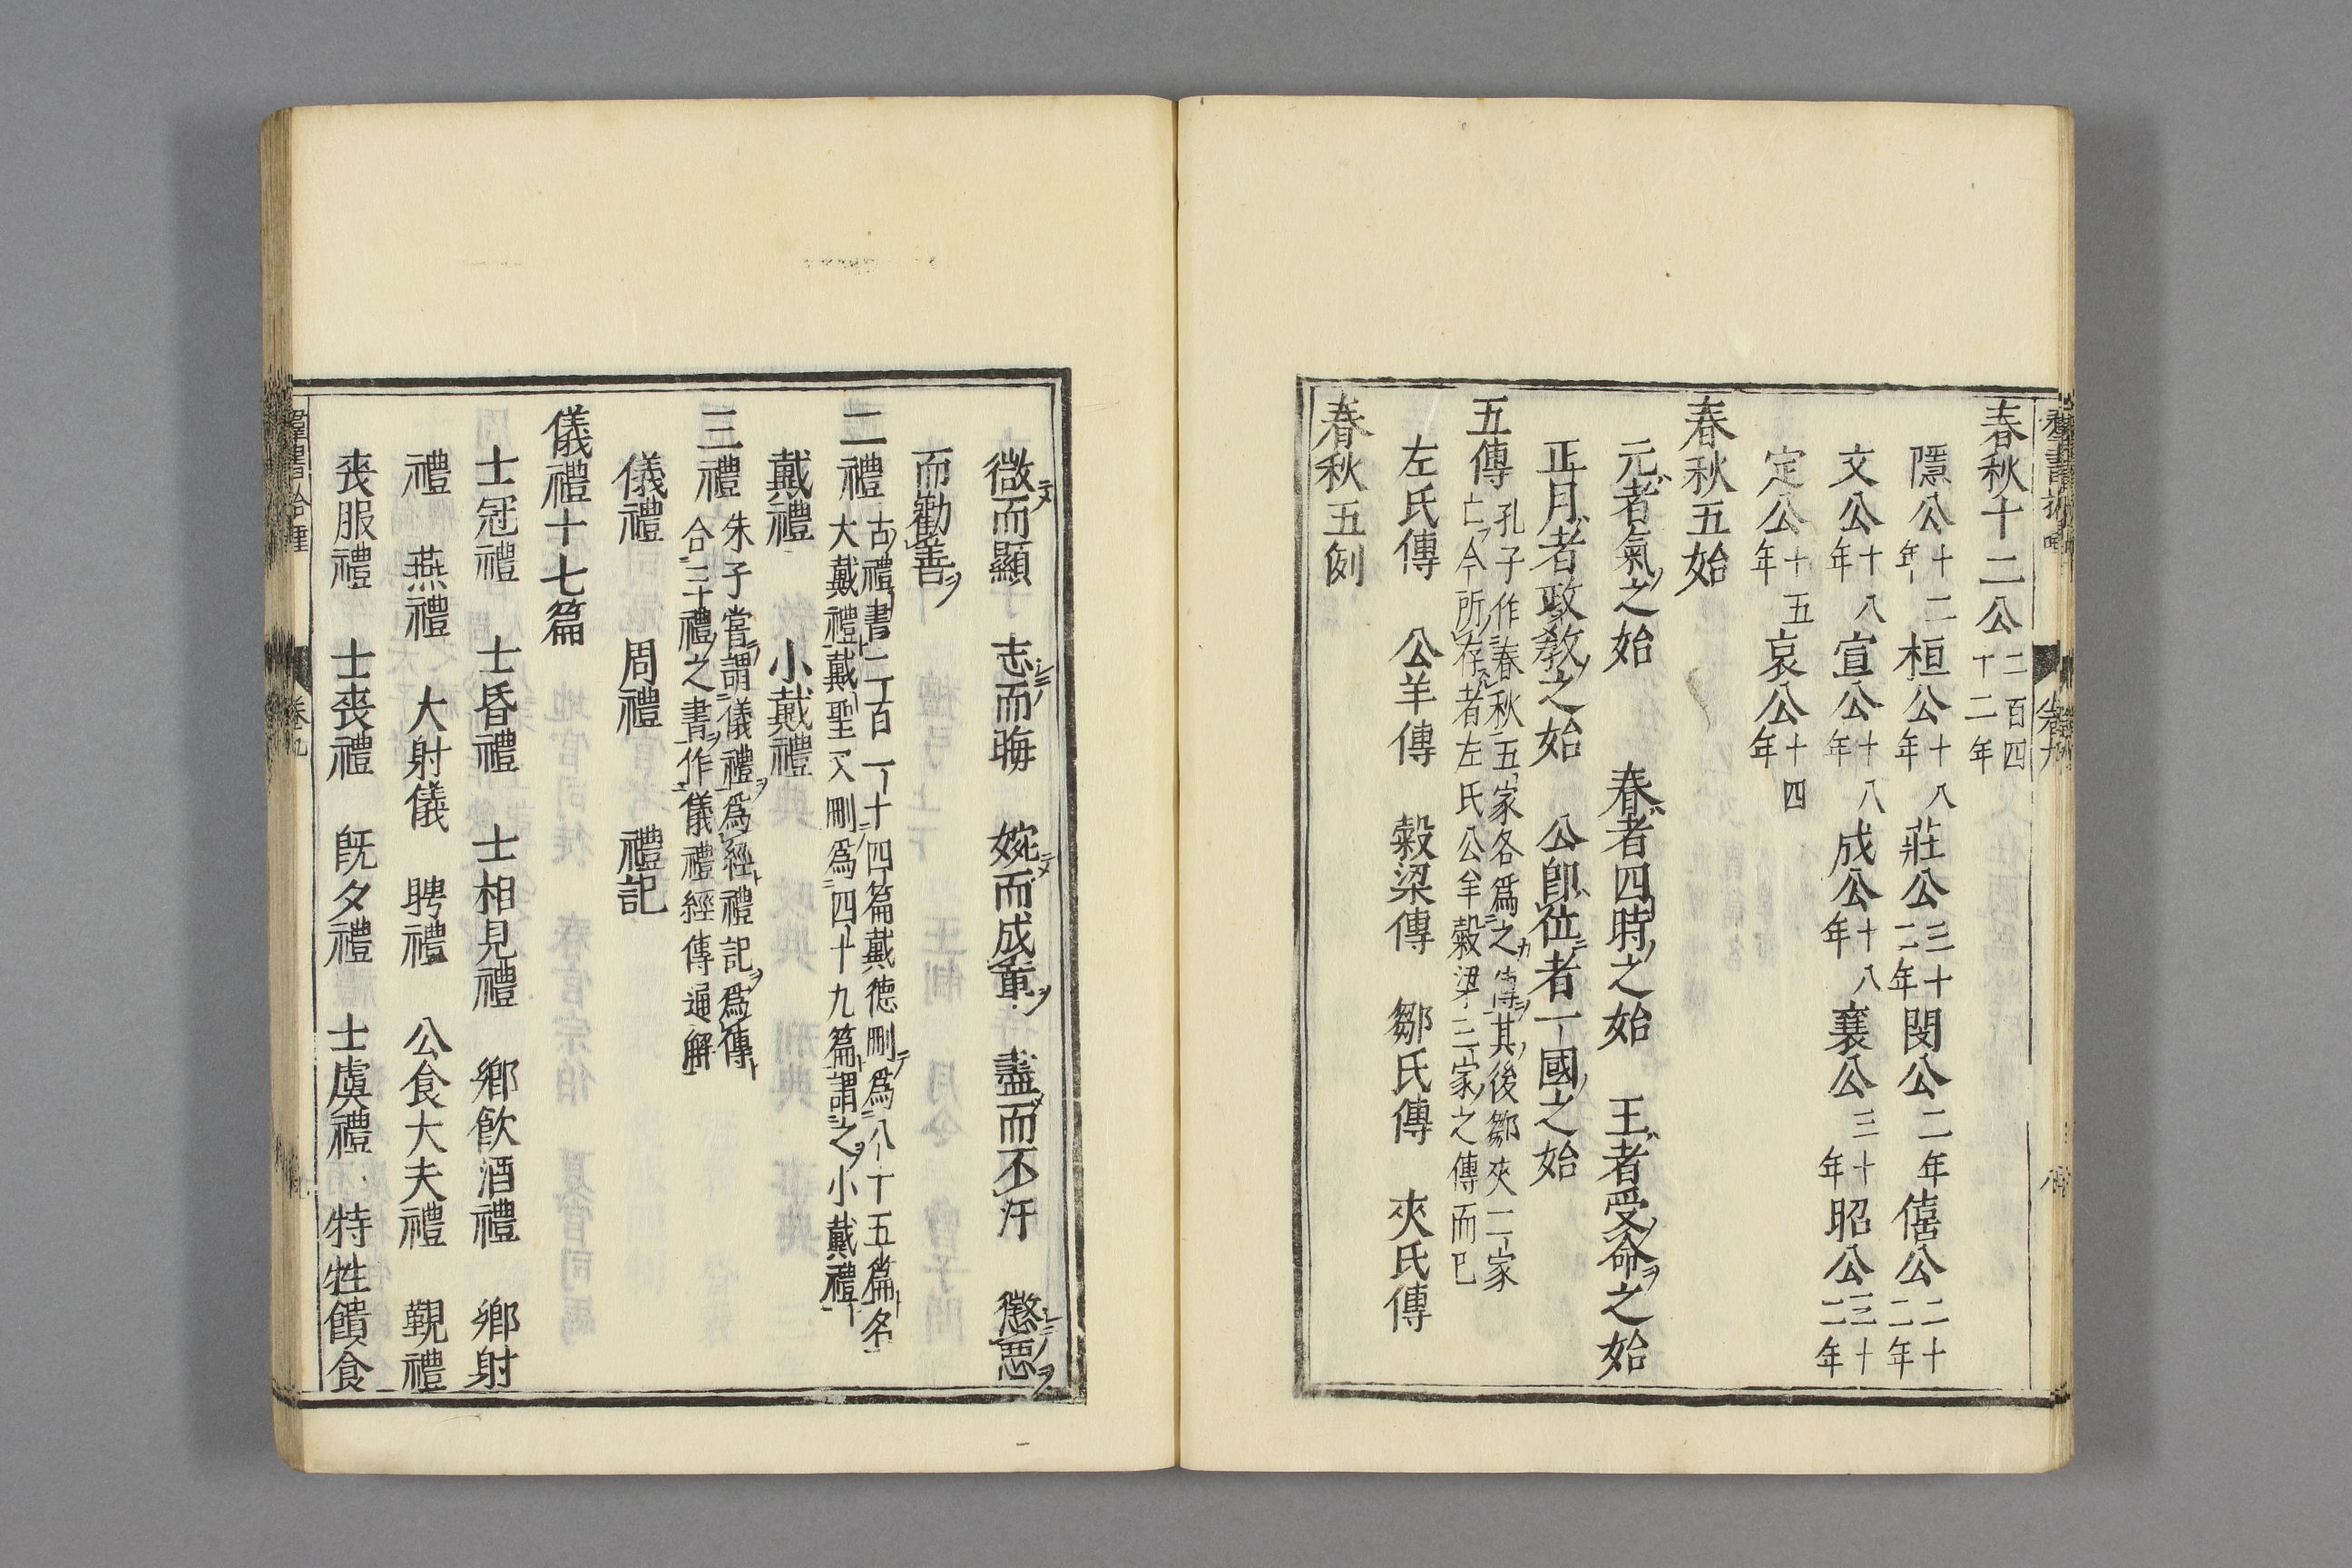 春秋十二公二百四十二年
隱公十二年桓公十八年莊公三十二年閔公二年僖公二十二年
文公十八年宣公十八年成公十八年襄公三十年昭公三十二年
定公十五年哀公十四年
春秋五始
元者氣之始　春者四時之始　王者受命之始
正月者政教之始　公卽位者一國之始
五傳孔子作春秋五家各爲之傳其後鄒夾二家亡今所存者左氏公羊穀梁三家之傳而已
左氏傳　公羊傳　穀梁傳　鄒氏傳　夾氏傳
春秋五例
微而顯　志而晦　婉而成章　盡而不汙　懲惡
而勸善
二禮古禮書二百一十四篇戴德刪爲八十五篇名大戴禮戴聖又刪爲四十九篇謂之小戴禮
戴禮　小戴禮
三禮朱子嘗謂儀禮爲經禮記爲傳合三禮之書作儀禮經傳通解
儀禮　周禮　禮記
儀禮十七篇
士冠禮　士昏禮　士相見禮　鄉飮酒禮　鄉射
禮　燕禮　大射儀　聘禮　公食大夫禮　覲禮
喪服禮　士喪禮　旣夕禮　士虞禮　特牲饋食
卷九